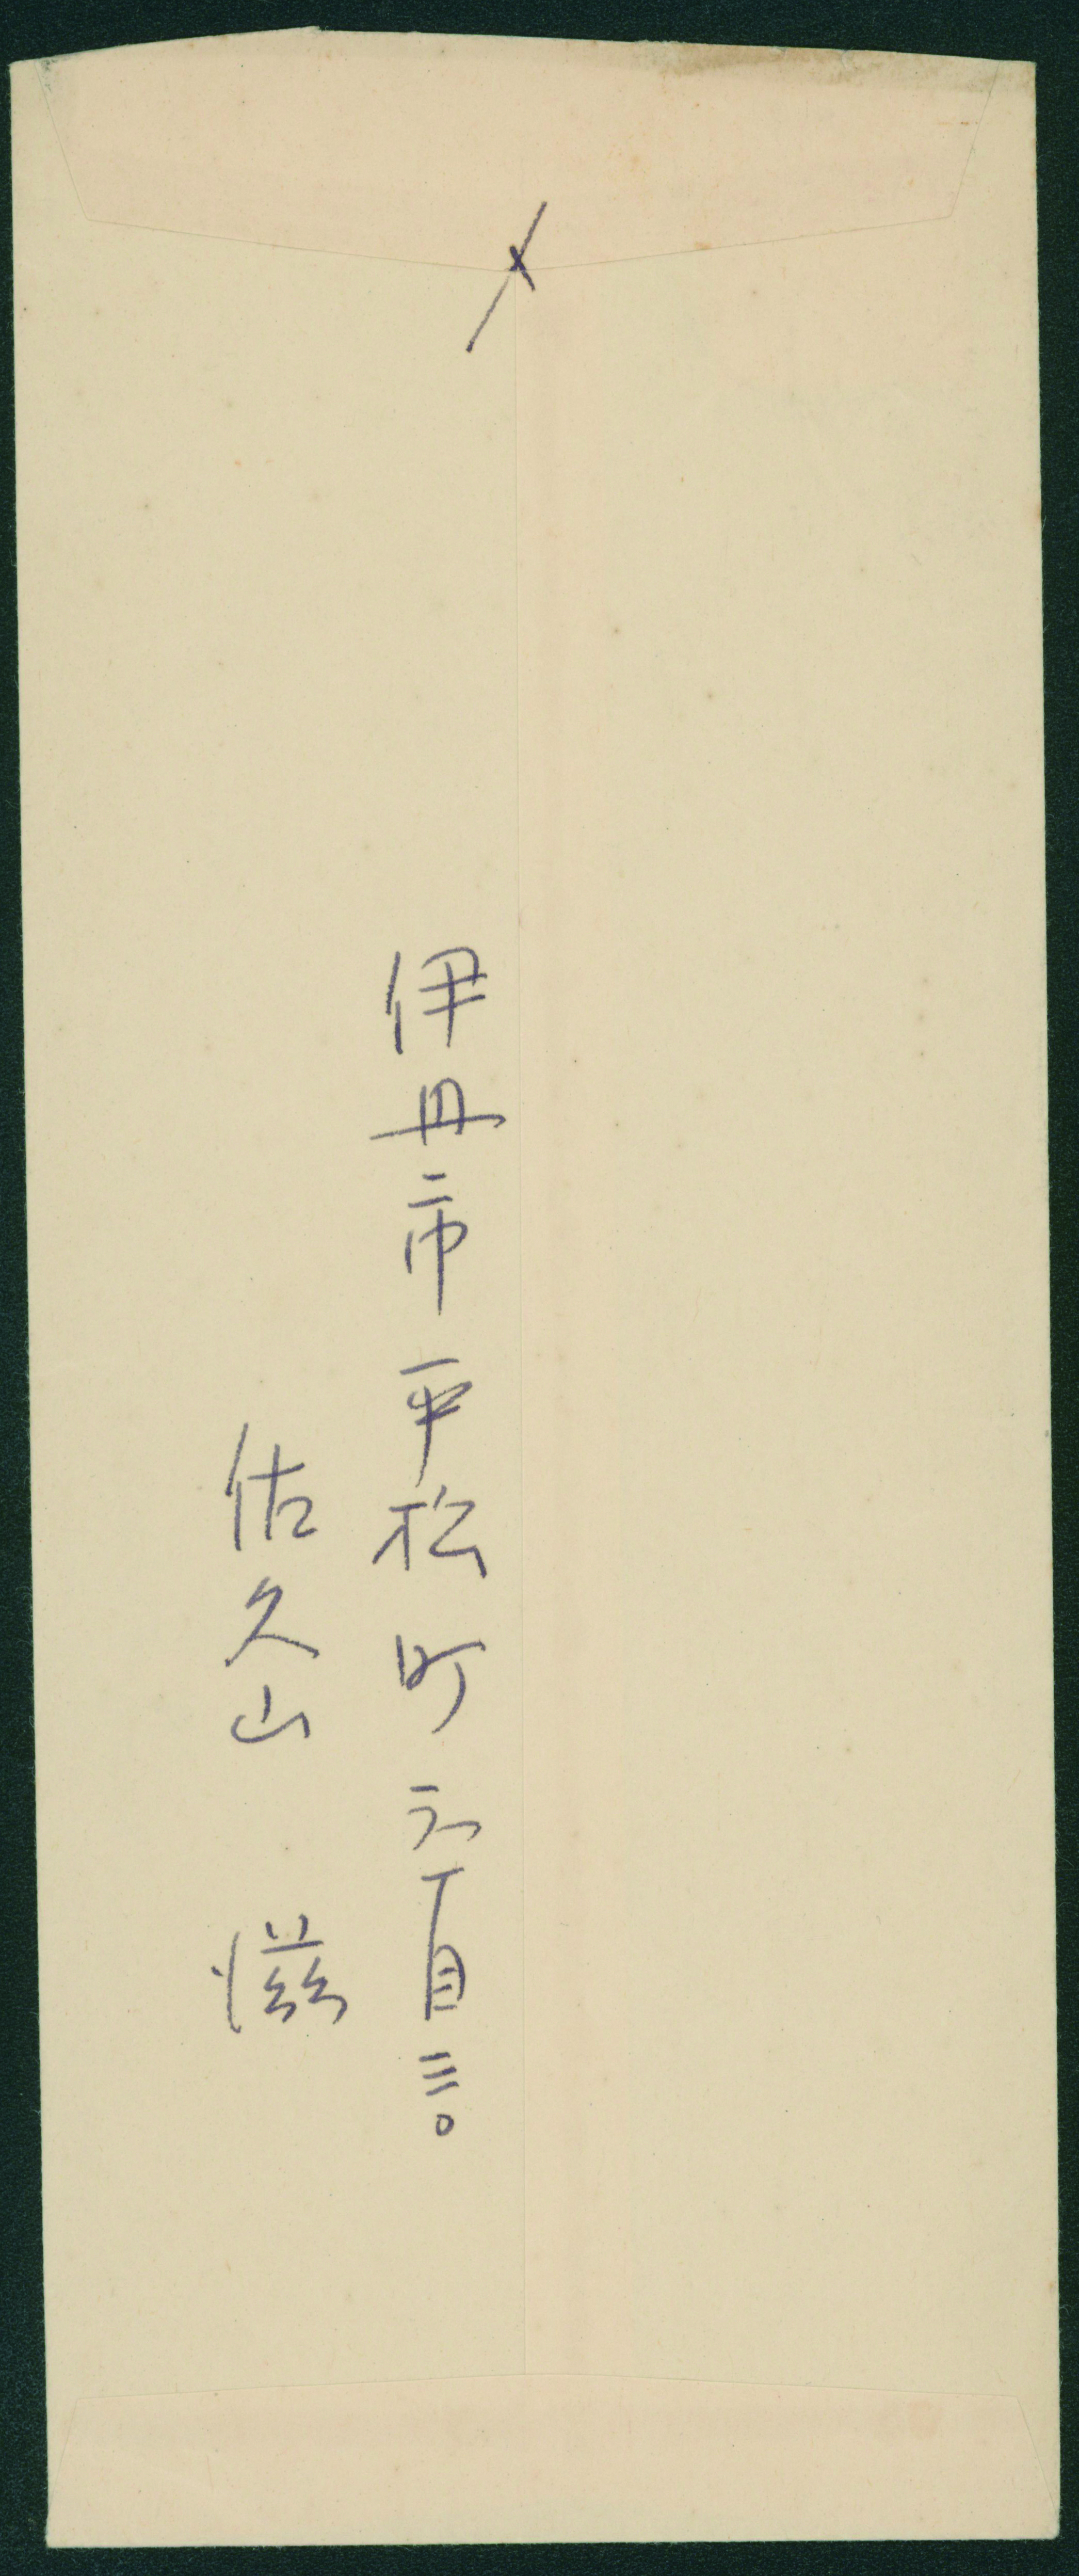 〆
伊丹市平松町六丁目三〇
佐久山 滋